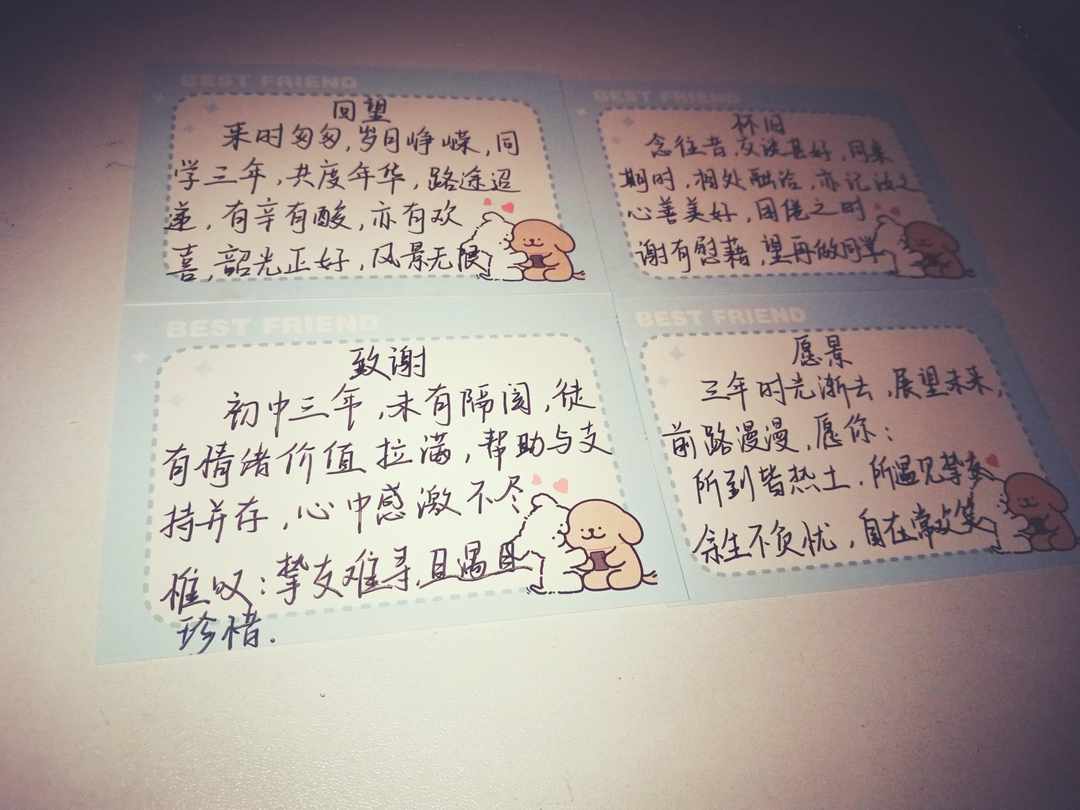 BEST FRIEND
回望
来时匆匆,岁月峥嵘,同
学三年,共度年华,路途迢
递,有辛有酸,亦有欢
喜,韶光正好,风景无限
BEST FRIEND
怀旧
念往昔,交谈甚好,同来
期时,相处融洽,亦记汝之
心善美好,困倦之时
谢有慰藉,望再做同学
BEST FRIEND
致谢
初中三年,未有隔阂,徒
有情绪价值拉满,帮助与支
持并存,心中感激不尽
惟叹:挚友难寻,且遇且
珍惜.
BEST FRIEND
愿景
三年时光渐去,展望未来,
前路漫漫,愿你:
所到皆热土,所遇见挚友
余生不负忧,自在常欢笑